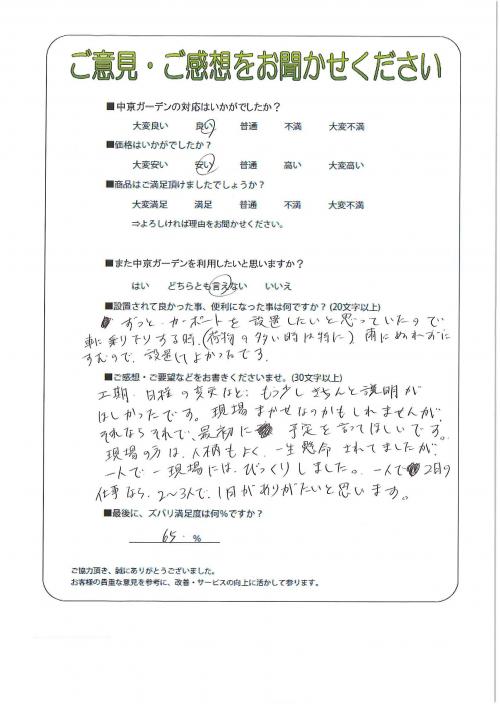 ご意見・ご感想をお聞かせください
■中京ガーデンの対応はいかがでしたか？
大変良い 良い 普通 不満 大変不満
■価格はいかがでしたか？
大変安い 安い 普通 高い 大変高い
■商品はご満足頂けましたでしょうか？
大変満足 満足 普通 不満 大変不満
⇒よろしければ理由をお聞かせください。
■また中京ガーデンを利用したいと思いますか？
はい どちらとも言えない いいえ
■設置されて良かった事、便利になった事は何ですか？(20文字以上)
ずっと カーポートを 設置したいと思っていたので
車に乗り下りする時、(荷物の多い時は特に) 雨にぬれずに
すむので、設置してよかったです。
■ご感想・ご要望などをお書きくださいませ。(30文字以上)
工期・日程 の変更など、もう少しきちんと説明が
ほしかったです。現場まかせなのかもしれませんが、
それならそれで、最初に 予定を言ってほしいです。
現場の方は、人柄もよく、一生懸命 されてましたが、
一人で一現場には、びっくりしました。一人で 2日の
仕事なら、2〜3人で、1日がありがたいと思います。
■最後に、ズバリ満足度は何％ですか？
65. ％
ご協力頂き、誠にありがとうございました。
お客様の貴重な意見を参考に、改善・サービスの向上に活かして参ります。